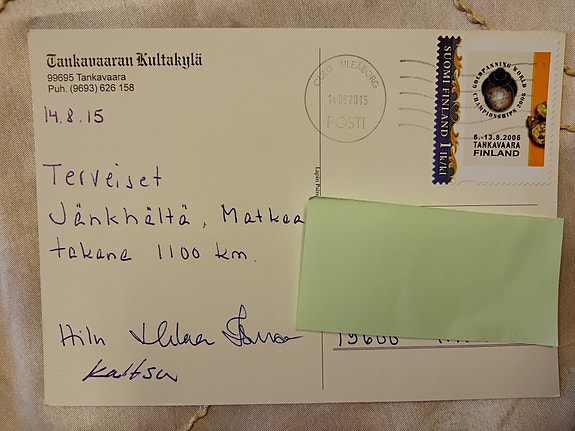 Tankavaaran Kultakylä
99695 Tankavaara
Puh. (9693) 626 158
14.8.15
Terveiset
Jänkhältä, Matkaa
takana 1100 km.
Kaitsu
OULU ULEÅBORG
14.08.2015
POSTI
SUOMI FINLAND 1 lk/kl
GOLDPANNING WORLD
CHAMPIONSHIPS 2006
6.-13.8.2006
TANKAVAARA
FINLAND